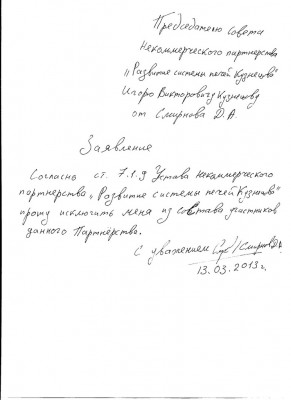 Председателю Совета
Некоммерческого партнерства
„Развитие системы печей Кузнецова"
Игорю Викторовичу Кузнецову
от Смирнова Д.А.
Заявление
Согласно ст. 7.1.9 Устава Некоммерческого
партнерства „Развитие системы печей Кузнецова"
прошу исключить меня из состава участников
данного Партнёрства.
С уважением /Смирнов Д.А.
13.03.2013г.